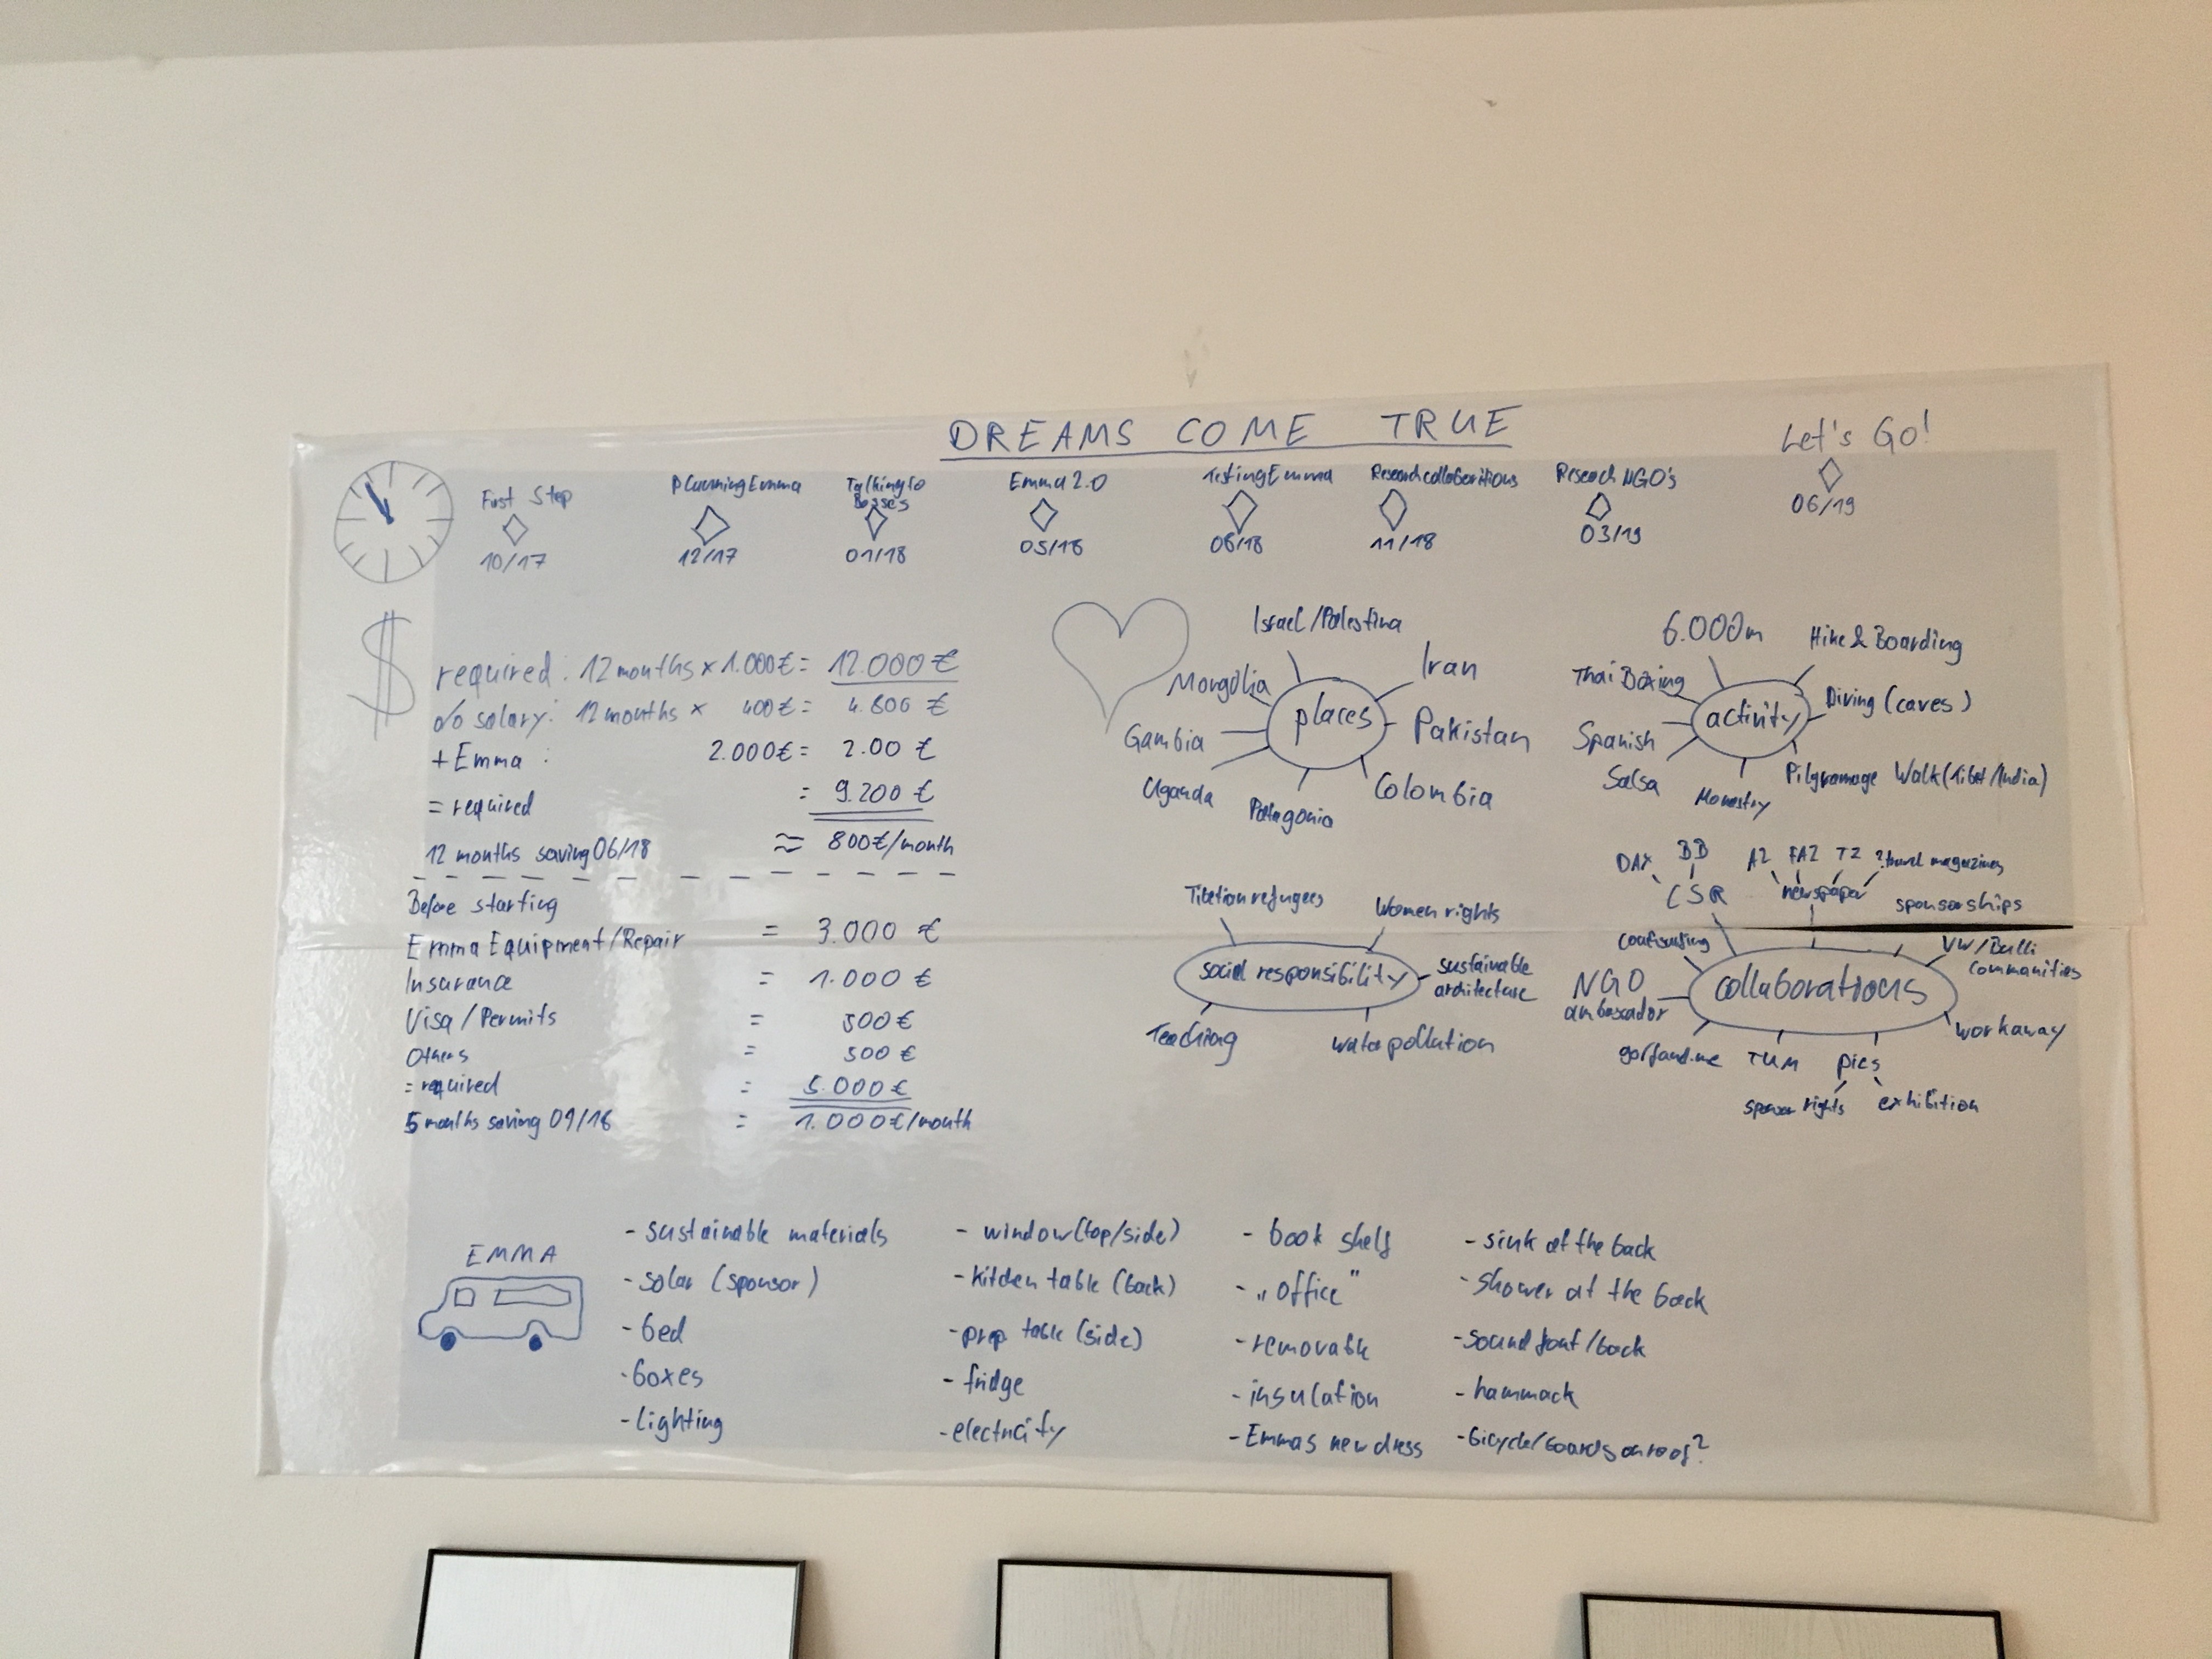 DREAMS COME TRUE
Let's Go!
06/19
First Step
10/17
Planning Emma
12/17
Talking to
Bosses
01/18
Emma 2.0
05/18
Testing Emma
08/18
Research collaboritions
11/18
Research NGO's
03/19
$
required: 12 months x 1.000€ = 12.000 €
% salary: 12 months x 400€ = 4.800 €
+ Emma : 2.000€ = 2.00 €
= required = 9.200 €
12 months saving 06/18 ≈ 800€/month
Before starting
Emma Equipment/Repair = 3.000 €
Insurance = 1.000 €
Visa/Permits = 500 €
Others = 500 €
= required = 5.000 €
5 months saving 09/18 = 1.000€/month
places
Israel/Palestina
Iran
Pakistan
Colombia
Patagonia
Uganda
Gambia
Mongolia
activity
6.000m
Hike & Boarding
Diving (caves)
Pilgramage Walk (Tibet/India)
Monestry
Salsa
Spanish
Thai Boxing
social responsibility
Tibetion refugees
Women rights
sustainable
architecture
water pollution
Teaching
collaborations
DAX
BB
CSR
AZ FAZ TZ ? travel magazines
newspaper
sponsorships
VW/Bulli
Communities
workaway
pics
sponsor rights
exhibition
TUM
gofundme
NGO
ambassador
Couchsurfing
EMMA
- sustainable materials
- solar (sponsor)
- bed
- boxes
- lighting
- window (top/side)
- kitchen table (back)
- prep table (side)
- fridge
- electricity
- book shelf
- „office"
- removable
- insulation
- Emmas new dress
- sink at the back
- shower at the back
- sound front/back
- hammack
- bicycle/boards on roof?